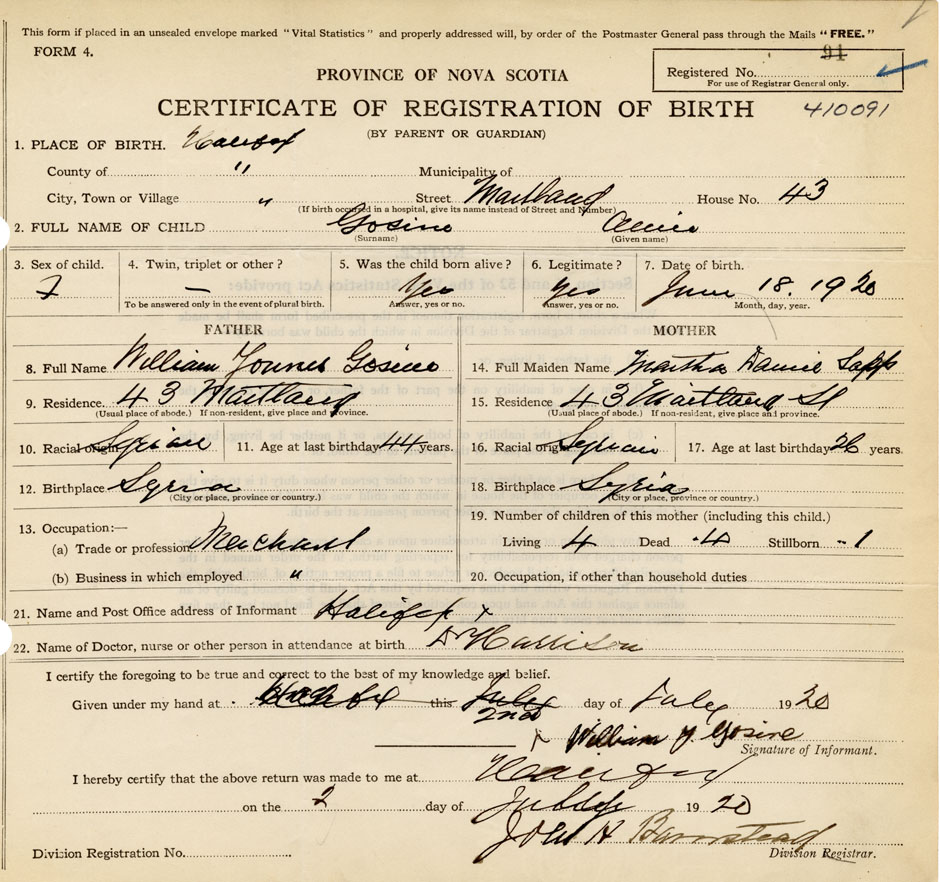 This form if placed in an unsealed envelope marked "Vital Statistics" and properly addressed will, by order of the Postmaster General pass through the Mails "FREE."
FORM 4.
91
PROVINCE OF NOVA SCOTIA
Registered No.
For use of Registrar General only.
CERTIFICATE OF REGISTRATION OF BIRTH
410091
(BY PARENT OR GUARDIAN)
1. PLACE OF BIRTH. Halifax
County of " Municipality of
City, Town or Village " Street Maitland House No. 43
(If birth occured in a hospital, give its name instead of Street and Number)
2. FULL NAME OF CHILD Gosine
(Surname) (Given name)
3. Sex of child. 4. Twin, triplet or other? 5. Was the child born alive? 6. Legitimate? 7. Date of birth.
F — Yes Yes June 18. 1920
To be answered only in the event of plural birth. Answer, yes or no. Answer, yes or no. Month, day, year.
FATHER MOTHER
8. Full Name William Gosine 14. Full Maiden Name Martha
9. Residence. 43 Maitland 15. Residence 43 Maitland St
(Usual place of abode.) If non-resident, give place and province. (Usual place of abode.) If non-resident, give place and province.
10. Racial origin Syrian 11. Age at last birthday 44 years. 16. Racial origin Syrian 17. Age at last birthday 26 years.
12. Birthplace Syria 18. Birthplace Syria
(City or place, province or country.) (City or place, province or country.)
13. Occupation:— 19. Number of children of this mother (including this child.)
(a) Trade or profession Merchant Living 4 Dead 4 Stillborn 1
(b) Business in which employed " 20. Occupation, if other than household duties
21. Name and Post Office address of Informant Halifax
22. Name of Doctor, nurse or other person in attendance at birth Dr Harrison
I certify the foregoing to be true and correct to the best of my knowledge and belief.
Given under my hand at Halifax this July day of July 1920
2nd
x William Y Gosine
Signature of Informant.
I hereby certify that the above return was made to me at Halifax
on the 2 day of July 1920
John H Barnstead
Division Registration No. Division Registrar.